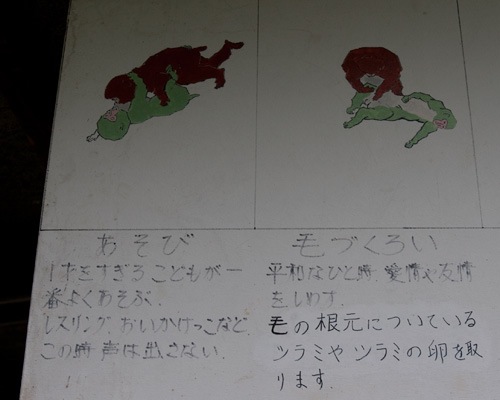 あそび
1才をすぎるこどもが一
番よくあそぶ.
レスリング.おいかけっこなど.
この時声は出さない.
毛づくろい
平和なひと時.愛情や友情
をしめす.
毛の根元についている
ツラミやツラミの卵を取
ります.